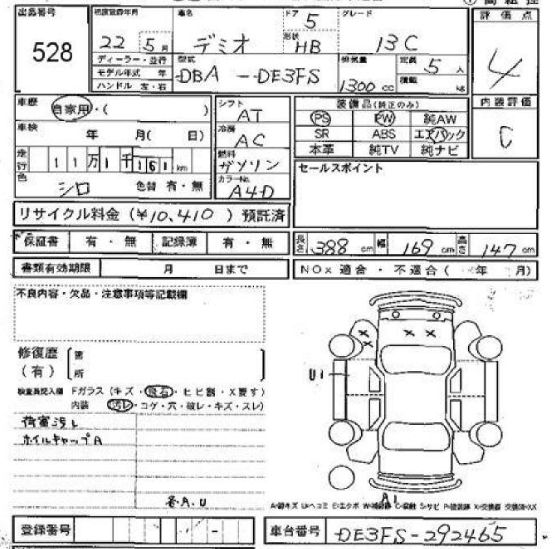 出品番号 528
初度登録年月 22年 5月 車名 デミオ ドア 5 形状 HB グレード 13C
評価点 4
ディーラー・並行
モデル年式 年
ハンドル 左・右
型式 DBA-DE3FS 排気量 1300cc 定員 5人 積載 kg
内装評価 C
車歴 自家用・( )
車検 年 月( 日)
走行 11万1千161km
色 シロ 色替 有・無
シフト AT
冷房 AC
燃料 ガソリン
カラーNo. A4D
装備品(純正のみ)
PS PW 純AW
SR ABS エアバック
本革 純TV 純ナビ
セールスポイント
リサイクル料金 (¥10,410) 預託済
保証書 有・無 記録簿 有・無
長さ 388cm 幅 169cm 高さ 147cm
書類有効期限 月 日まで
NOx 適合・不適合( 年 月)
不良内容・欠品・注意事項等記載欄
修復歴 (有)
検査員記入欄 Fガラス(キズ・飛石・ヒビ割・X要す)
内装 (汚れ・コゲ・穴・破レ・キズ・スレ)
荷室汚レ
ホイルキャップA
各A.U
U1
A1
登録番号
車台番号 DE3FS-292465